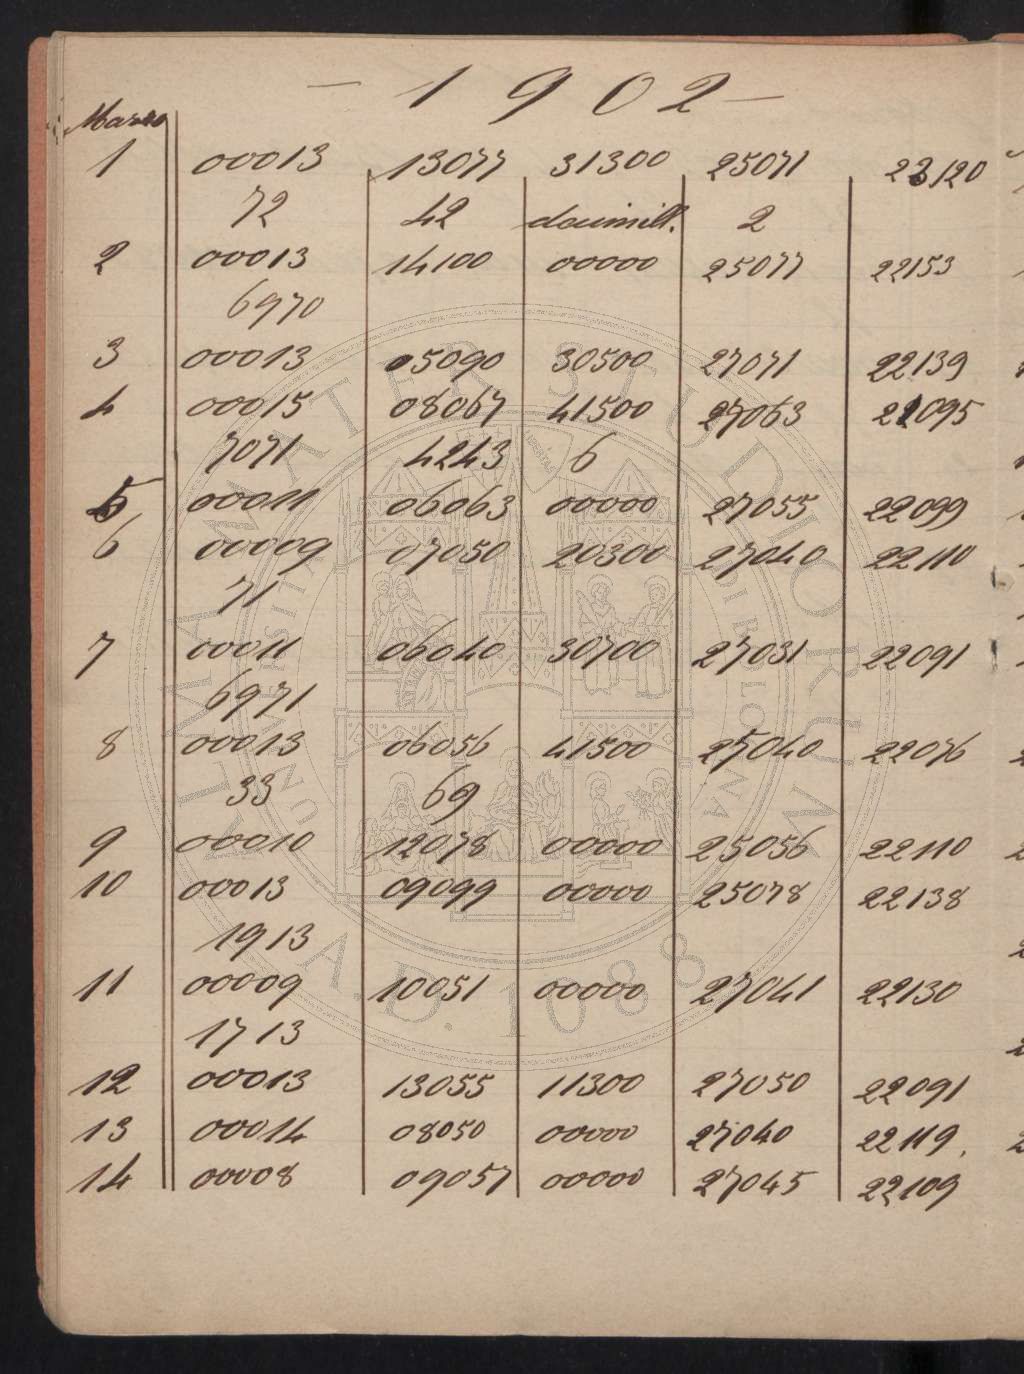 - 1902 -
Marzo
1 00013 13077 31300 25071 22120
72 42 decimill. 2
2 00013 14100 00000 25077 22153
6970
3 00013 05090 30500 27071 22139
4 00015 08067 41500 27063 22095
7071 4243 6
5 00011 06063 00000 27055 22099
6 00009 07050 20300 27040 22110
71
7 00011 06040 30700 27031 22091
6971
8 00013 06056 41500 25040 22076
33 69
9 00010 12078 00000 25056 22110
10 00013 09099 00000 25078 22138
1913
11 00009 10051 00000 27041 22130
1713
12 00013 13055 11300 27050 22091
13 00014 08050 00000 27040 22119.
14 00008 09057 00000 27045 22109
ALMA MATER STUDIORUM
A.D. 1088